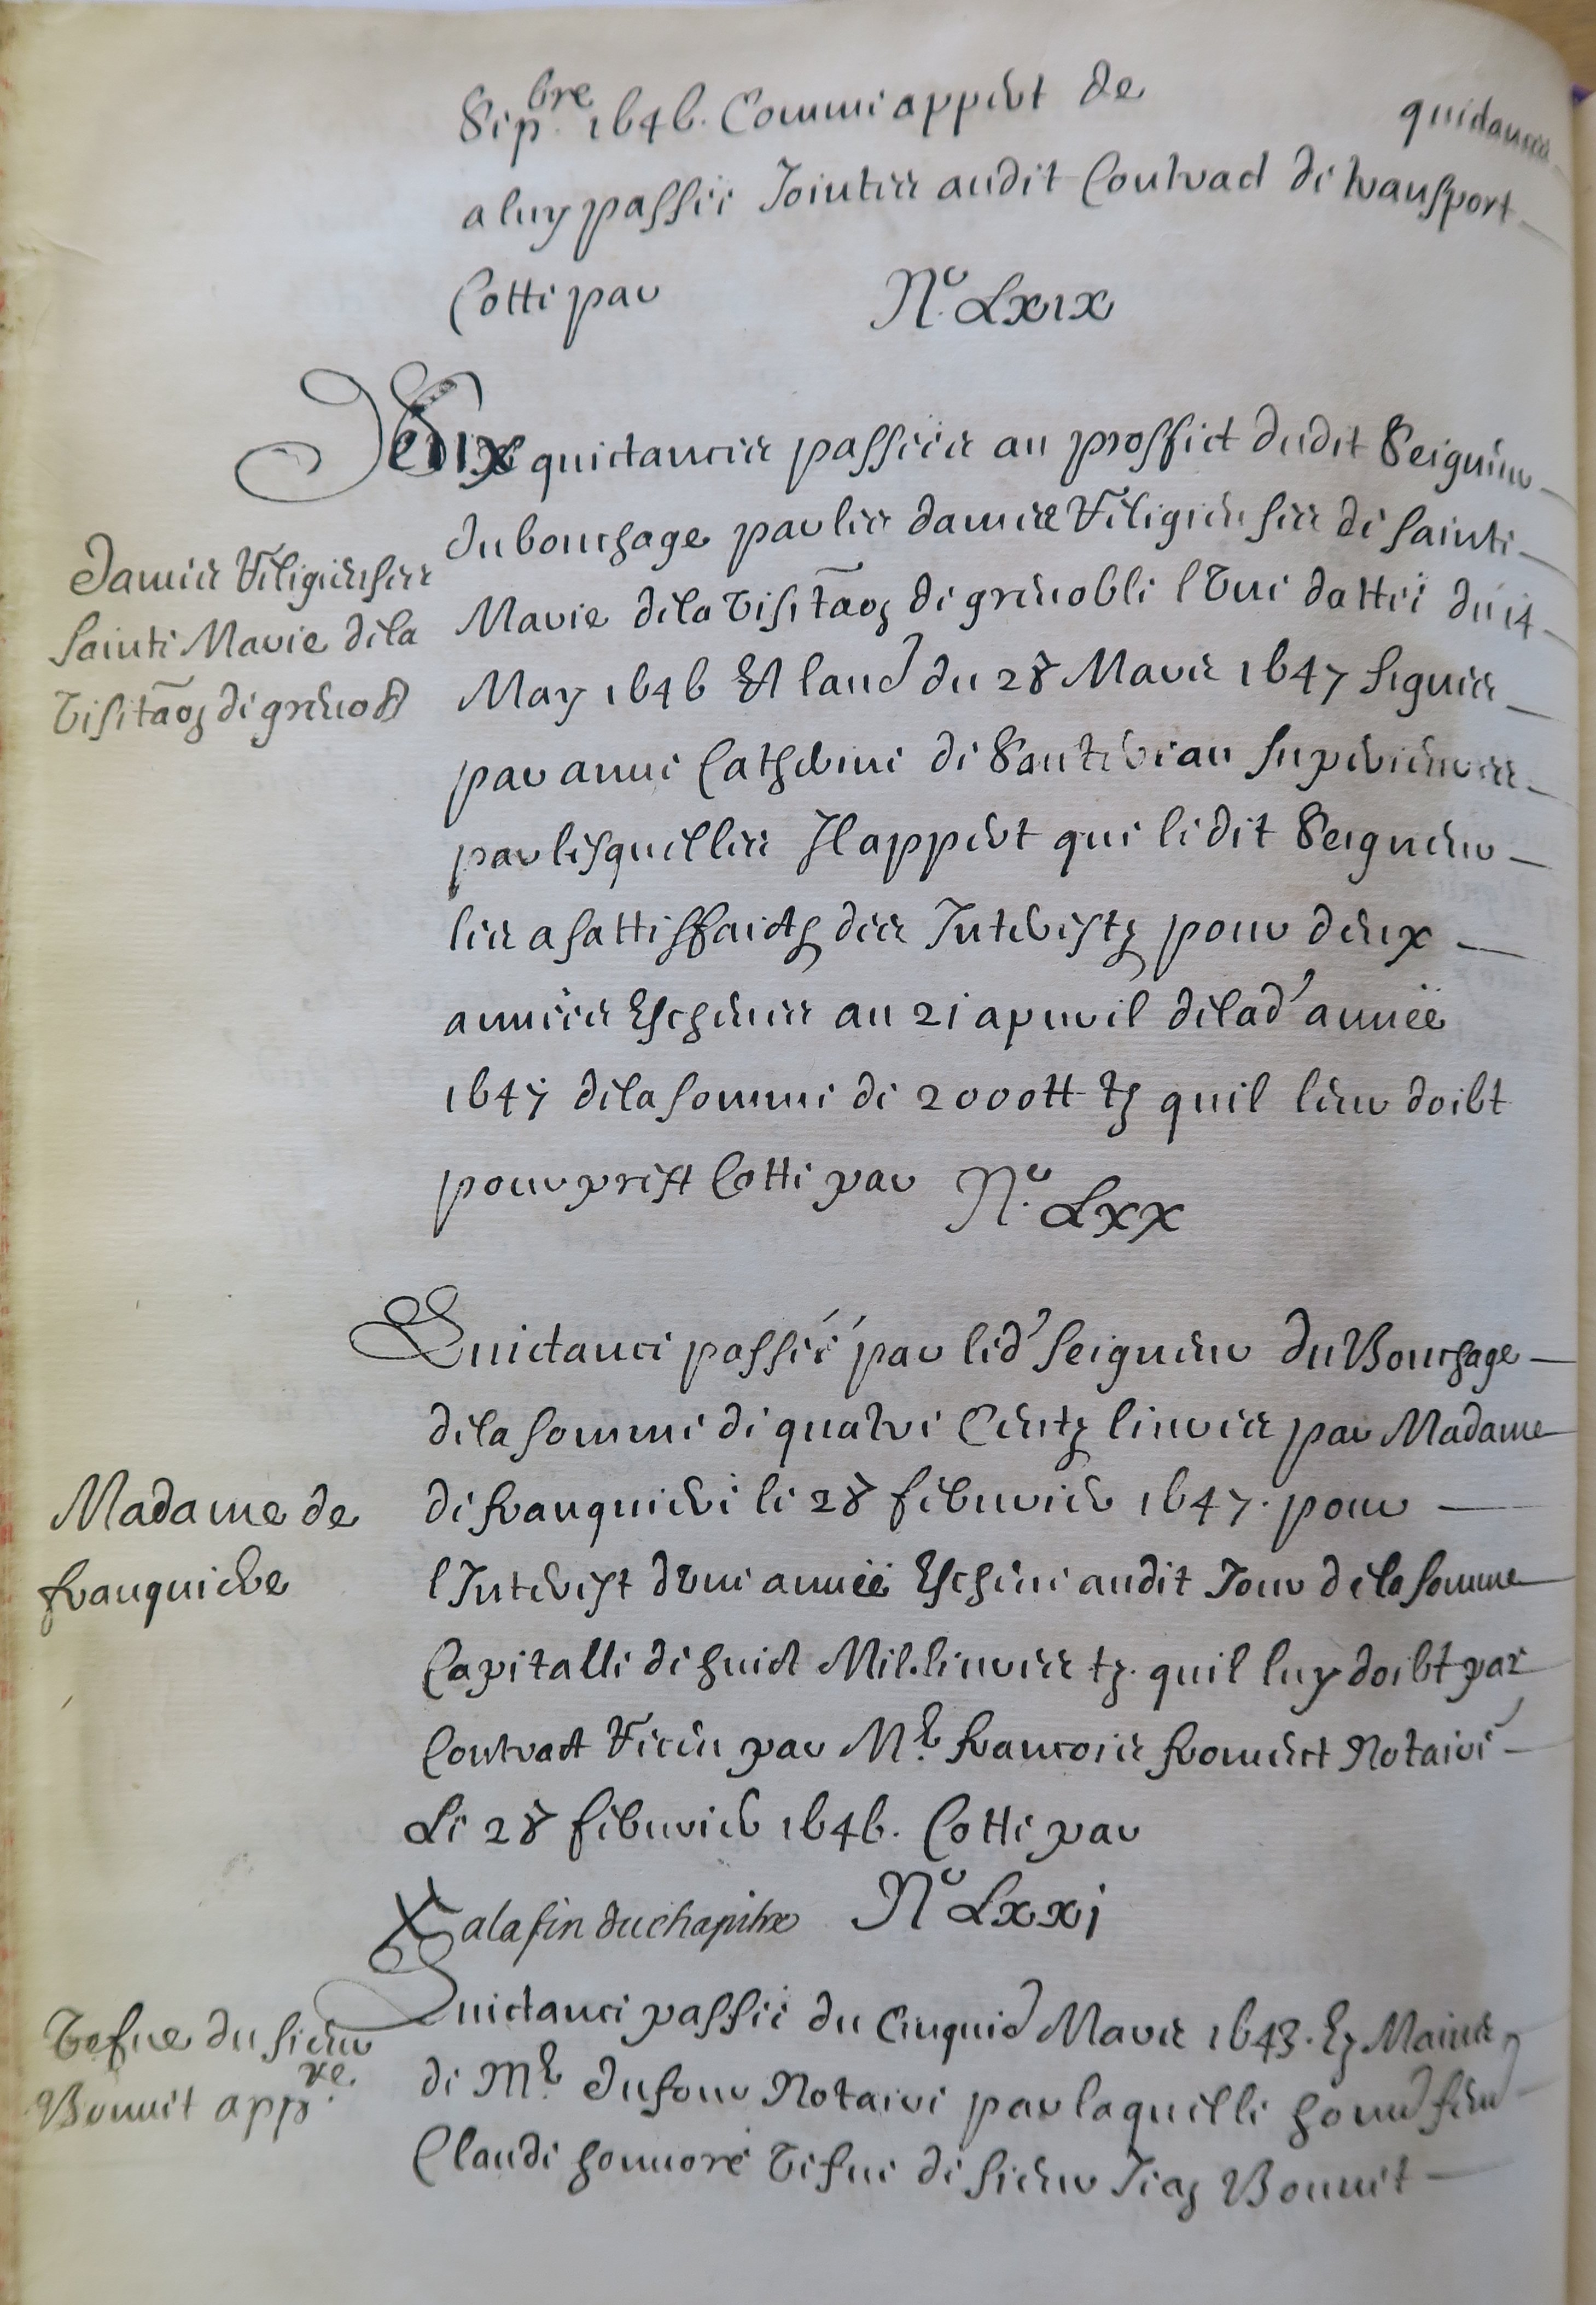 Sepbre. 1646. Comme appert de quictances
a luy passée Jointes audit Contract de transport
Cotté par N.o Lxix
Deux quictances passées au proffict dudit Seigneur
du bouchage par les dames Religieuses de sainte
Marie de la visitaon de grenoble l'vne dattée du 14
May 1646 Et laud du 28 Mars 1647 signées
par anne Catherine de Sautereau superieures
par lesquelles Il appert que le dit Seigneur
les a sattisffaictz des Interestz pour deux
années Escheues au 21 apvril de lad' année
1647 de la somme de 2000tt tz quil leur doibt
pour prest Cotté par N.o Lxx
Dames Religieuses
sainte Marie de la
visitaon de grenob
Quictance passée par led' seigneur du Bouchage
de la somme de quatre Centz livres par Madame
de franquiere le 28 febvrier 1647. pour
l'Interest d'vne année Escheue audit Jour de la somme
Capitalle de huict Mil livres tz. quil luy doibt par
Contract Receu par Me. francois froment Notaire
Le 28 febvrier 1646. Cotté par
Madame de
franquiere
X a la fin du chapitre N.o Lxxj
Quictance passée du Cinquie Mars 1643. Ez Mains
de Me. dufour Notaire par laquelle hond feue
Claude honnoré vefue de sieur Jean Bonnet
vefue du sieur
Bonnet appre.